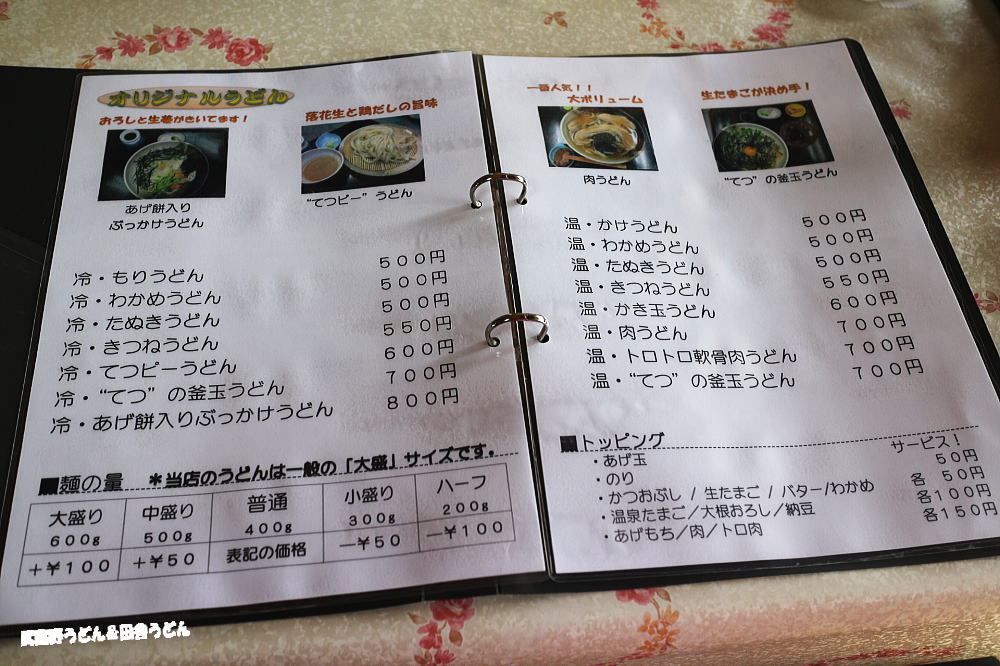 オリジナルうどん
おろしと生姜がきいてます！
落花生と鶏だしの旨味
あげ餅入り
ぶっかけうどん
“てつピー”うどん
冷・もりうどん ５００円
冷・わかめうどん ５００円
冷・たぬきうどん ５００円
冷・きつねうどん ５５０円
冷・てつピーうどん ６００円
冷・“てつ”の釜玉うどん ７００円
冷・あげ餅入りぶっかけうどん ８００円
■麺の量 ＊当店のうどんは一般の「大盛」サイズです。
大盛り 中盛り 普通 小盛り ハーフ
６００g ５００g ４００g ３００g ２００g
＋￥１００ ＋￥５０ 表記の価格 －￥５０ －￥１００
一番人気！！
大ボリューム
生たまごが決め手！
肉うどん
“てつ”の釜玉うどん
温・かけうどん ５００円
温・わかめうどん ５００円
温・たぬきうどん ５００円
温・きつねうどん ５５０円
温・かき玉うどん ６００円
温・肉うどん ７００円
温・トロトロ軟骨肉うどん ７００円
温・“てつ”の釜玉うどん ７００円
■トッピング
・あげ玉 サービス！
・のり ５０円
・かつおぶし / 生たまご / バター/わかめ 各 ５０円
・温泉たまご／大根おろし／納豆 各１００円
・あげもち／肉／トロ肉 各１５０円
武蔵野うどん＆田舎うどん